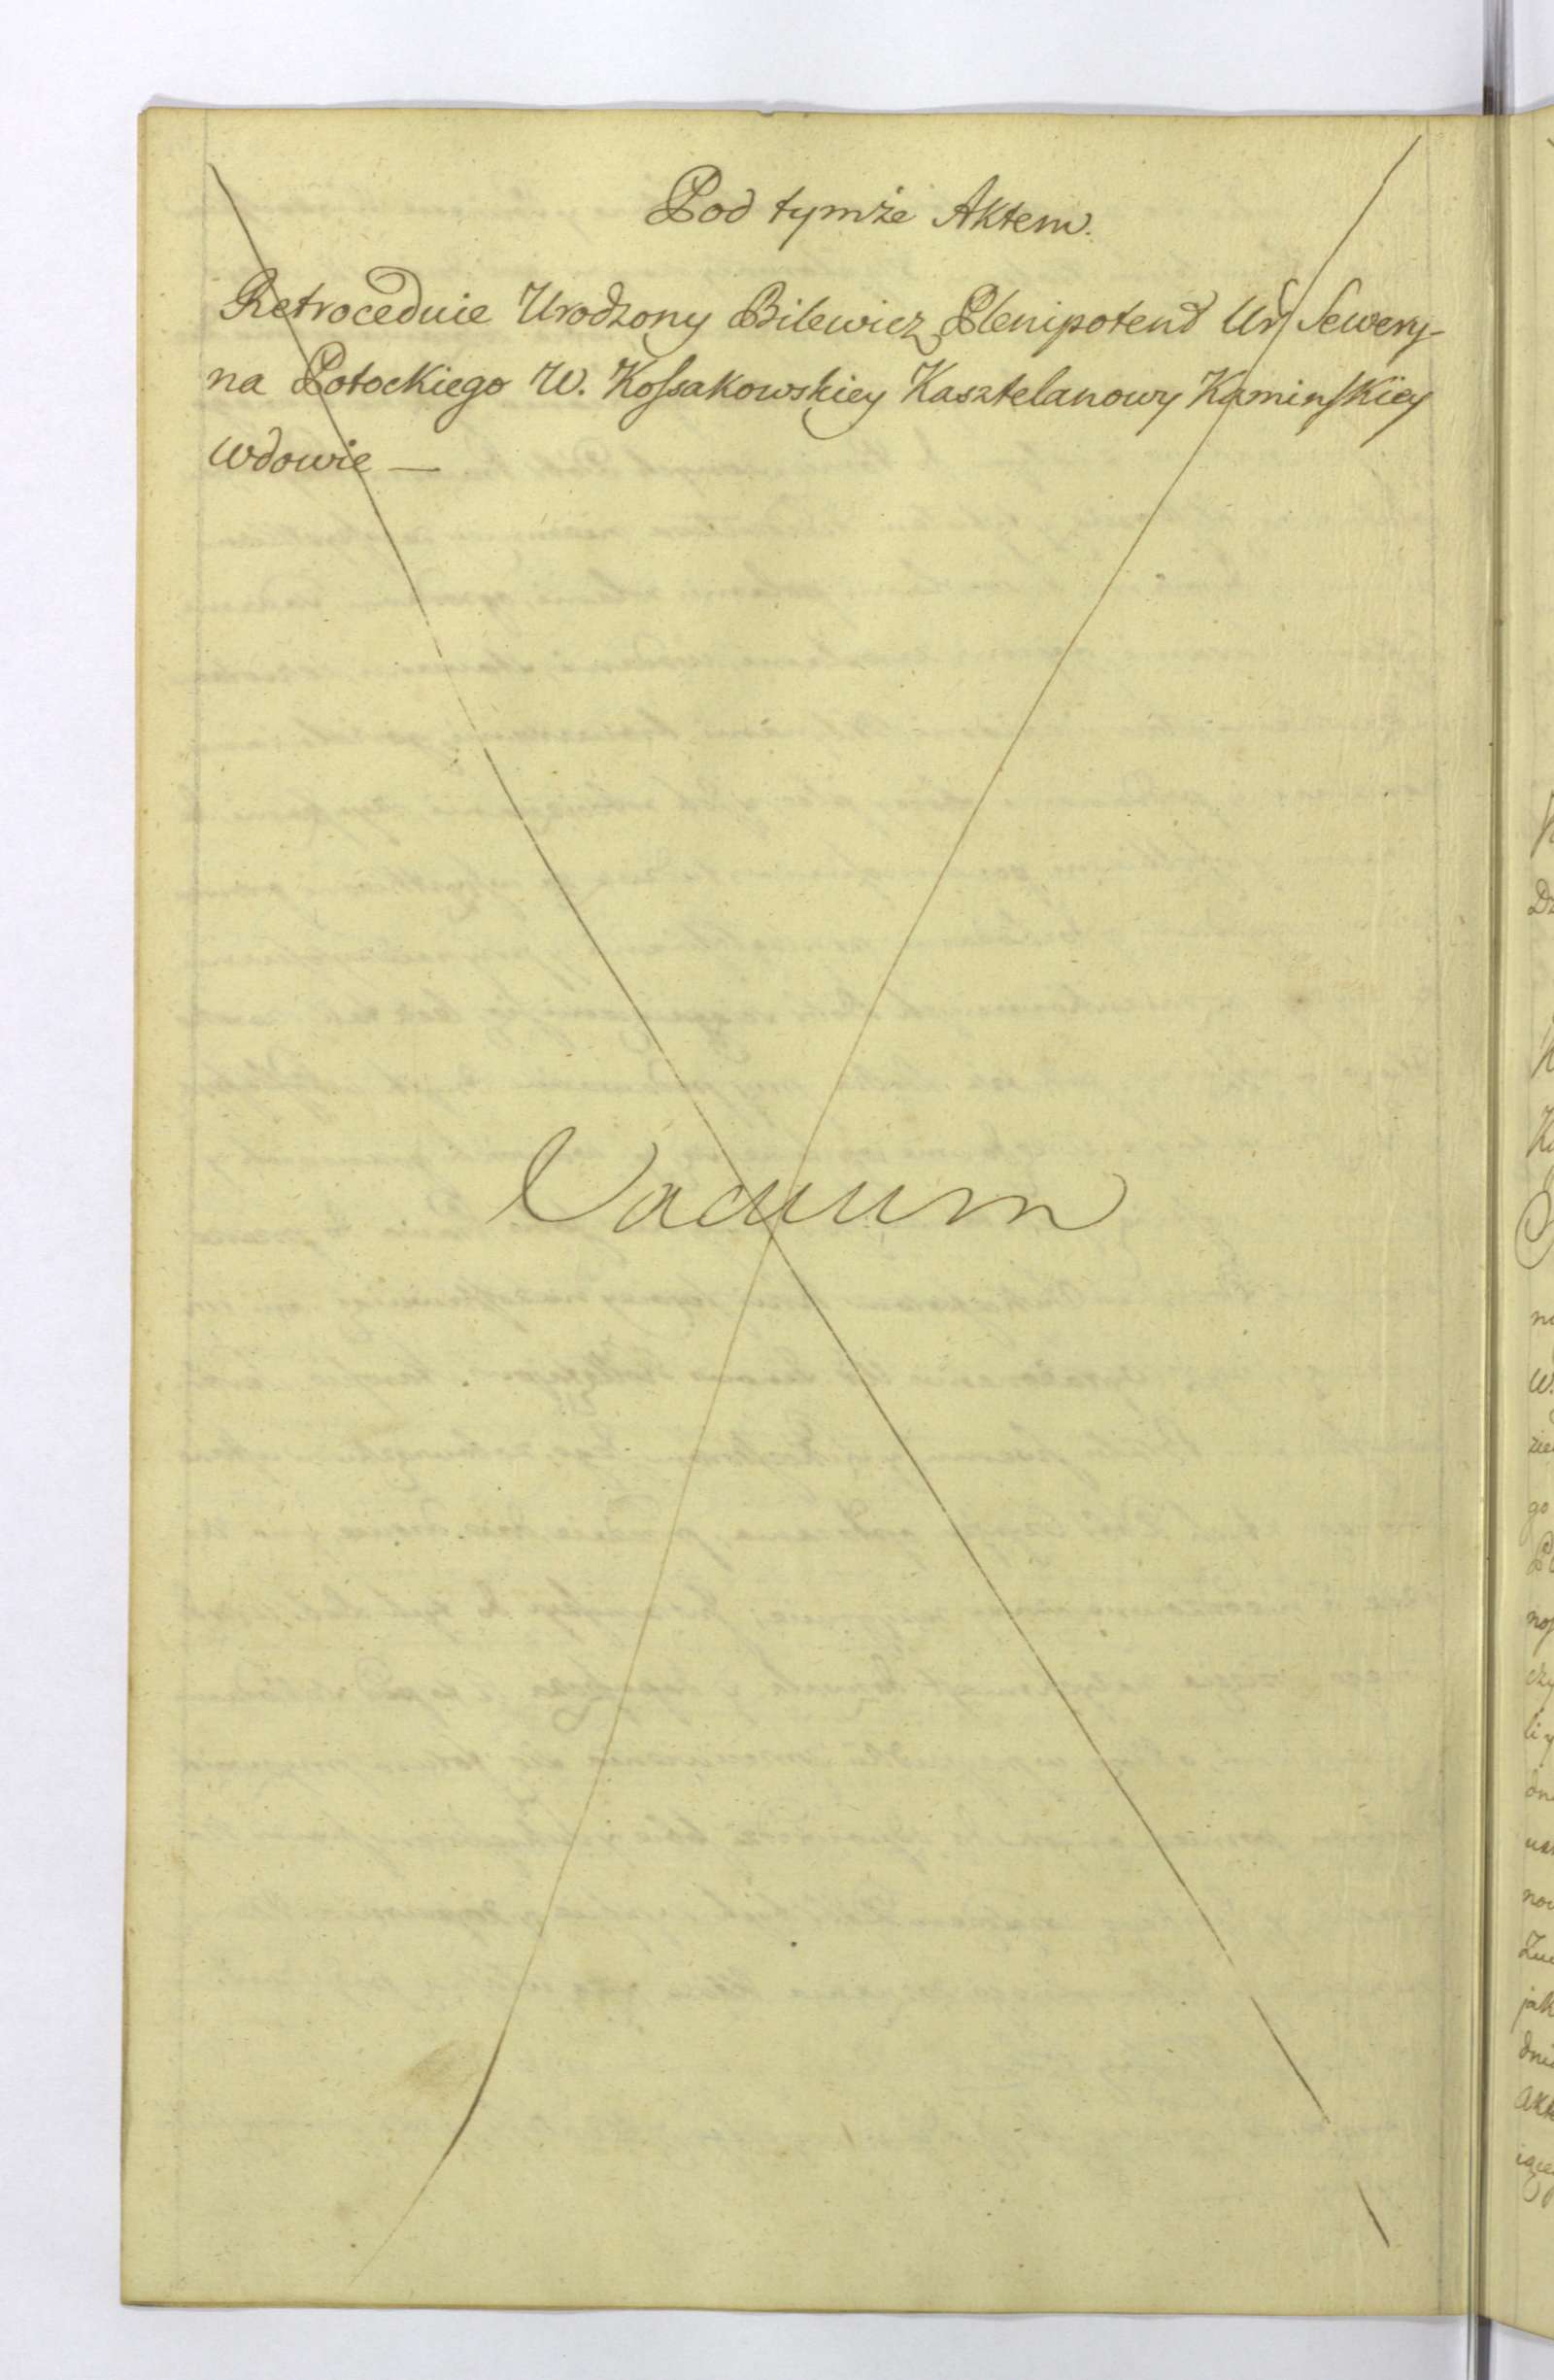 Pod tymże Aktem.
Retroceduie Urodzony Bilewicz Plenipotent Ur Sewery-
na Potockiego W. Kossakowskiey Kasztelanowy Kaminskiey
wdowie —
Vacuum